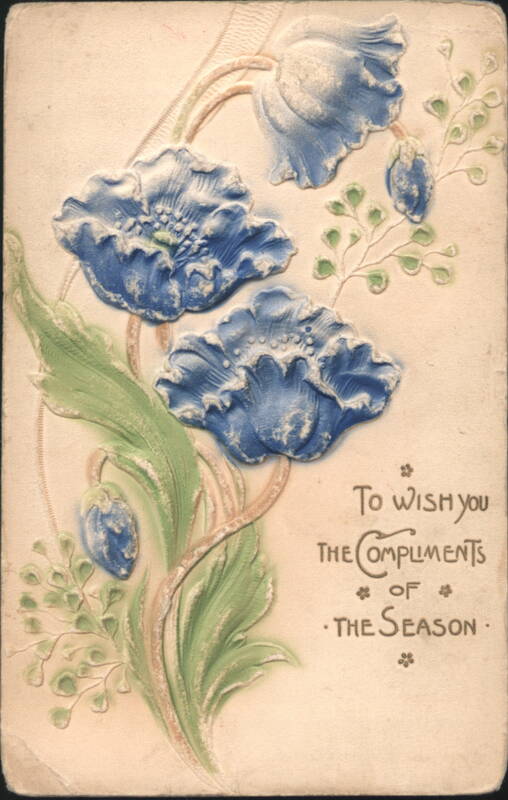 To Wish you
the Compliments
of
· the Season ·